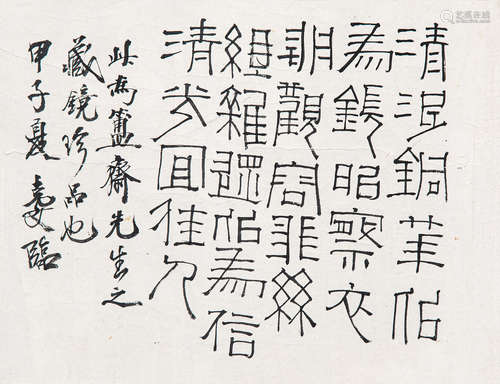 清銅華以
為鏡昭察衣
服觀容貌絲
組雜遝以為信
清光宜佳人
此為簠齋先生之
藏鏡珍品也
甲子夏臨